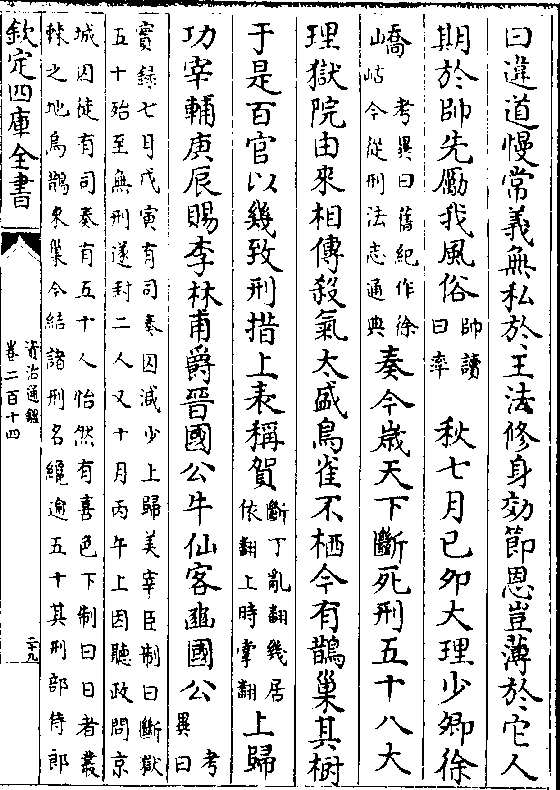 曰違道慢常義無私於王法修身効節恩豈薄於它人
期於帥先勵我風俗帥讀曰率 秋七月己卯大理少卿徐
嶠考異曰舊紀作徐岵今從刑法志通典奏今歳天下斷死刑五十八大
理獄院由來相傳殺氣太盛鳥雀不栖今有鵲巢其樹
于是百官以幾致刑措上表稱賀斷丁亂翻幾居依翻上時掌翻上歸
功宰輔庚辰賜李林甫爵晉國公牛仙客豳國公考異曰
實録七月戊寅有司奏囚減少上歸美宰臣制曰斷獄
五十殆至無刑遂封二人又十月丙午上因聽政問京
城囚徒有司奏有五十人怡然有喜色下制曰日者叢
棘之地烏鵲來巢今結諸刑名纔逾五十其刑部侍郎
欽定四庫全書
資治通鑑
卷二百十四
二十九